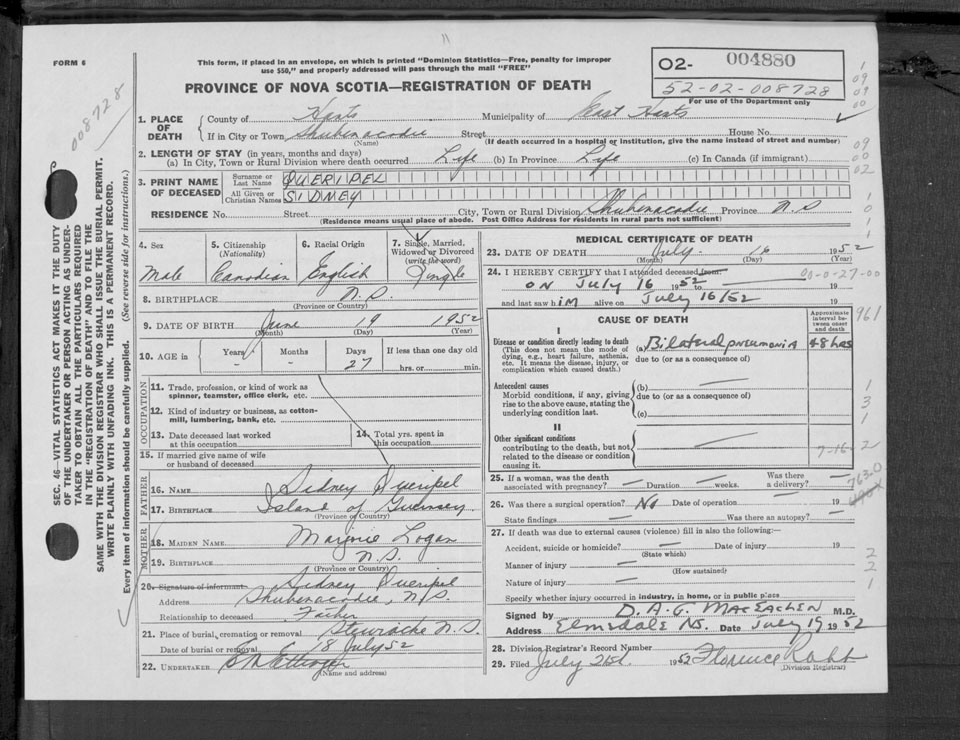 FORM 6
This form, if placed in an envelope, on which is printed "Dominion Statistics—Free, penalty for improper
use $50," and properly addressed will pass through the mail "FREE"
PROVINCE OF NOVA SCOTIA—REGISTRATION OF DEATH
O2- 004880
52-02-008728
For use of the Department only
008728
1. PLACE OF DEATH
County of Hants Municipality of East Hants
If in City or Town Shubenacadie Street House No.
(Name) (If death occurred in a hospital or institution, give the name instead of street and number)
2. LENGTH OF STAY (in years, months and days)
(a) In City, Town or Rural Division where death occurred Life (b) In Province Life (c) In Canada (if immigrant)
3. PRINT NAME OF DECEASED
Surname or Last Name QUERIPEL
All Given or Christian Names SIDNEY
RESIDENCE No. Street City, Town or Rural Division Shubenacadie Province N.S
(Residence means usual place of abode. Post Office Address for residents in rural parts not sufficient)
4. Sex Male
5. Citizenship (Nationality) Canadian
6. Racial Origin English
7. Single, Married, Widowed or Divorced (write the word) Single
8. BIRTHPLACE N.S.
(Province or Country)
9. DATE OF BIRTH June 19 1952
(Month) (Day) (Year)
10. AGE in Years - Months - Days 27 If less than one day old hrs. or min.
OCCUPATION
11. Trade, profession, or kind of work as
spinner, teamster, office clerk, etc.
12. Kind of industry or business, as cotton-
mill, lumbering, bank, etc.
13. Date deceased last worked
at this occupation
14. Total yrs. spent in
this occupation
15. If married give name of wife
or husband of deceased
FATHER
16. NAME Sidney Queripel
17. BIRTHPLACE Island of Guernsey
(Province or Country)
MOTHER
18. MAIDEN NAME Marjorie Logan
19. BIRTHPLACE N.S.
(Province or Country)
20. Signature of informant Sidney Queripel
Address Shubenacadie, N.S.
Relationship to deceased Father
21. Place of burial, cremation or removal N.S.
Date of burial or removal 18 July 52
22. UNDERTAKER Ettinger
(Name and address)
MEDICAL CERTIFICATE OF DEATH
23. DATE OF DEATH July 16 1952
(Month) (Day) (Year)
24. I HEREBY CERTIFY that I attended deceased from:
ON July 16 1952 to 19
and last saw him alive on July 16/52 19
CAUSE OF DEATH
Approximate interval between onset and death
I
Disease or condition directly leading to death (a) Bilateral pneumonia 48 hrs
(This does not mean the mode of dying, e.g., heart failure, asthenia, etc. It means the disease, injury, or complication which caused death.)
due to (or as a consequence of)
Antecedent causes (b)
Morbid conditions, if any, giving rise to the above cause, stating the underlying condition last.
due to (or as a consequence of)
(c)
II
Other significant conditions
contributing to the death, but not related to the disease or condition causing it.
7-16-2
25. If a woman, was the death
associated with pregnancy? — Duration weeks. Was there a delivery? —
26. Was there a surgical operation? No Date of operation 19
State findings Was there an autopsy? —
27. If death was due to external causes (violence) fill in also the following:—
Accident, suicide or homicide? Date of injury 19
(State which)
Manner of injury
(How sustained)
Nature of injury
Specify whether injury occurred in industry, in home, or in public place
Signed by D. A. G. MacEachen M.D.
Address Elmsdale NS. Date July 19 1952
28. Division Registrar's Record Number
29. Filed July 21st 1952 Florence
(Division Registrar)
SEC. 46—VITAL STATISTICS ACT MAKES IT THE DUTY
OF THE UNDERTAKER OR PERSON ACTING AS UNDER-
TAKER TO OBTAIN ALL THE PARTICULARS REQUIRED
IN THE "REGISTRATION OF DEATH" AND TO FILE THE
SAME WITH THE DIVISION REGISTRAR WHO SHALL ISSUE THE BURIAL PERMIT.
WRITE PLAINLY WITH UNFADING INK. THIS IS A PERMANENT RECORD.
Every item of information should be carefully supplied. (See reverse side for instructions.)
961
763.0